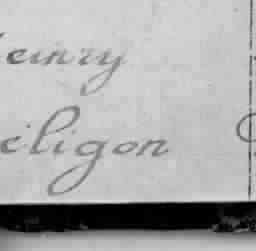 einry
eiligon